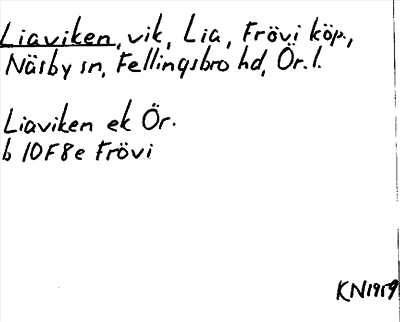 Liaviken, vik, Lia, Frövi köp.,
Näsby sn, Fellingsbro hd, Ör. l.
Liaviken ek Ör.
b 10F8e Frövi
KN1959